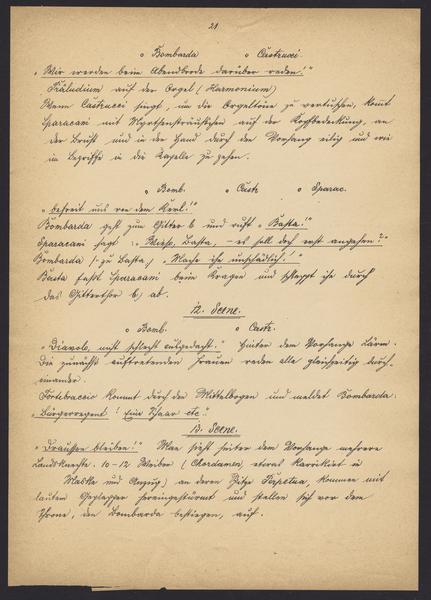 21
o Bombarda o Castrucci
„Wir werden beim Abendbrode darüber reden!"
Präludium auf der Orgel (Harmonium)
Wenn Castrucci singt, um die Orgeltöne zu vertuschen, kommt
Sparacani mit Myrthensträußchen auf der Kopfbedeckung, an
der Brust und in der Hand durch den Vorhang eilig und wie
im Begriffe in die Kapelle zu gehen.
o Bomb. o Castr. o Sparac.
„befreit uns von dem Kerl!"
Bombarda geht zum Gitter b und ruft „Basta!"
Sparacani sagt: „Wieso, Basta, – es soll doch erst angehen?"
Bombarda (zu Basta) „Mache ihn unschädlich!"
Basta faßt Sparacani beim Kragen und schleppt ihn durch
das Gitterthor b, ab.
12. Scene.
o Bomb. o Castr.
„Diavolo, nicht schlecht ausgedacht!" Hinter dem Vorhange Lärm.
Die zunächst auftretenden Frauen reden alle gleichzeitig durch-
einander.
Fortebraccio kommt durch den Mittelbogen und meldet Bombarda.
„Bürgerregent! Eine Schaar etc."
13. Scene.
„Draussen bleiben!" Man sieht hinter dem Vorhange mehrere
Landsknechte. 10–12 Weiber (Chordamen, etwas karrikirt in
Maske und Anzug) an deren Spitze Perpetua, kommen mit
lautem Geplapper hereingestürmt und stellen sich vor dem
Throne, den Bombarda bestiegen, auf.